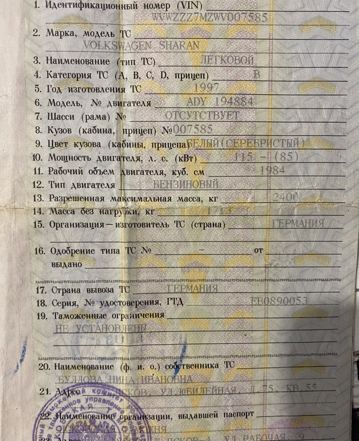 1. Идентификационный номер (VIN)
WVWZZZ7MZWV007585
2. Марка, модель ТС
VOLKSWAGEN SHARAN
3. Наименование (тип ТС) ЛЕГКОВОЙ
4. Категория ТС (А, В, С, D, прицеп) В
5. Год изготовления ТС 1997
6. Модель, № двигателя ADY 194884
7. Шасси (рама) № ОТСУТСТВУЕТ
8. Кузов (кабина, прицеп) № 007585
9. Цвет кузова (кабины, прицепа) БЕЛЫЙ(СЕРЕБРИСТЫЙ)
10. Мощность двигателя, л. с. (кВт) 115 - (85)
11. Рабочий объем двигателя, куб. см 1984
12. Тип двигателя БЕНЗИНОВЫЙ
13. Разрешенная максимальная масса, кг 2400
14. Масса без нагрузки, кг
15. Организация—изготовитель ТС (страна) ГЕРМАНИЯ
16. Одобрение типа ТС № - от
выдано
17. Страна вывоза ТС ГЕРМАНИЯ
18. Серия, № удостоверения, ГТД ЕВ0890053
19. Таможенные ограничения
НЕ УСТАНОВЛЕНЫ
20. Наименование (ф. и. о.) собственника ТС
НИНА ИВАНОВНА
21. Адрес ЮБИЛЕЙНАЯ
22. Наименование организации, выдавшей паспорт